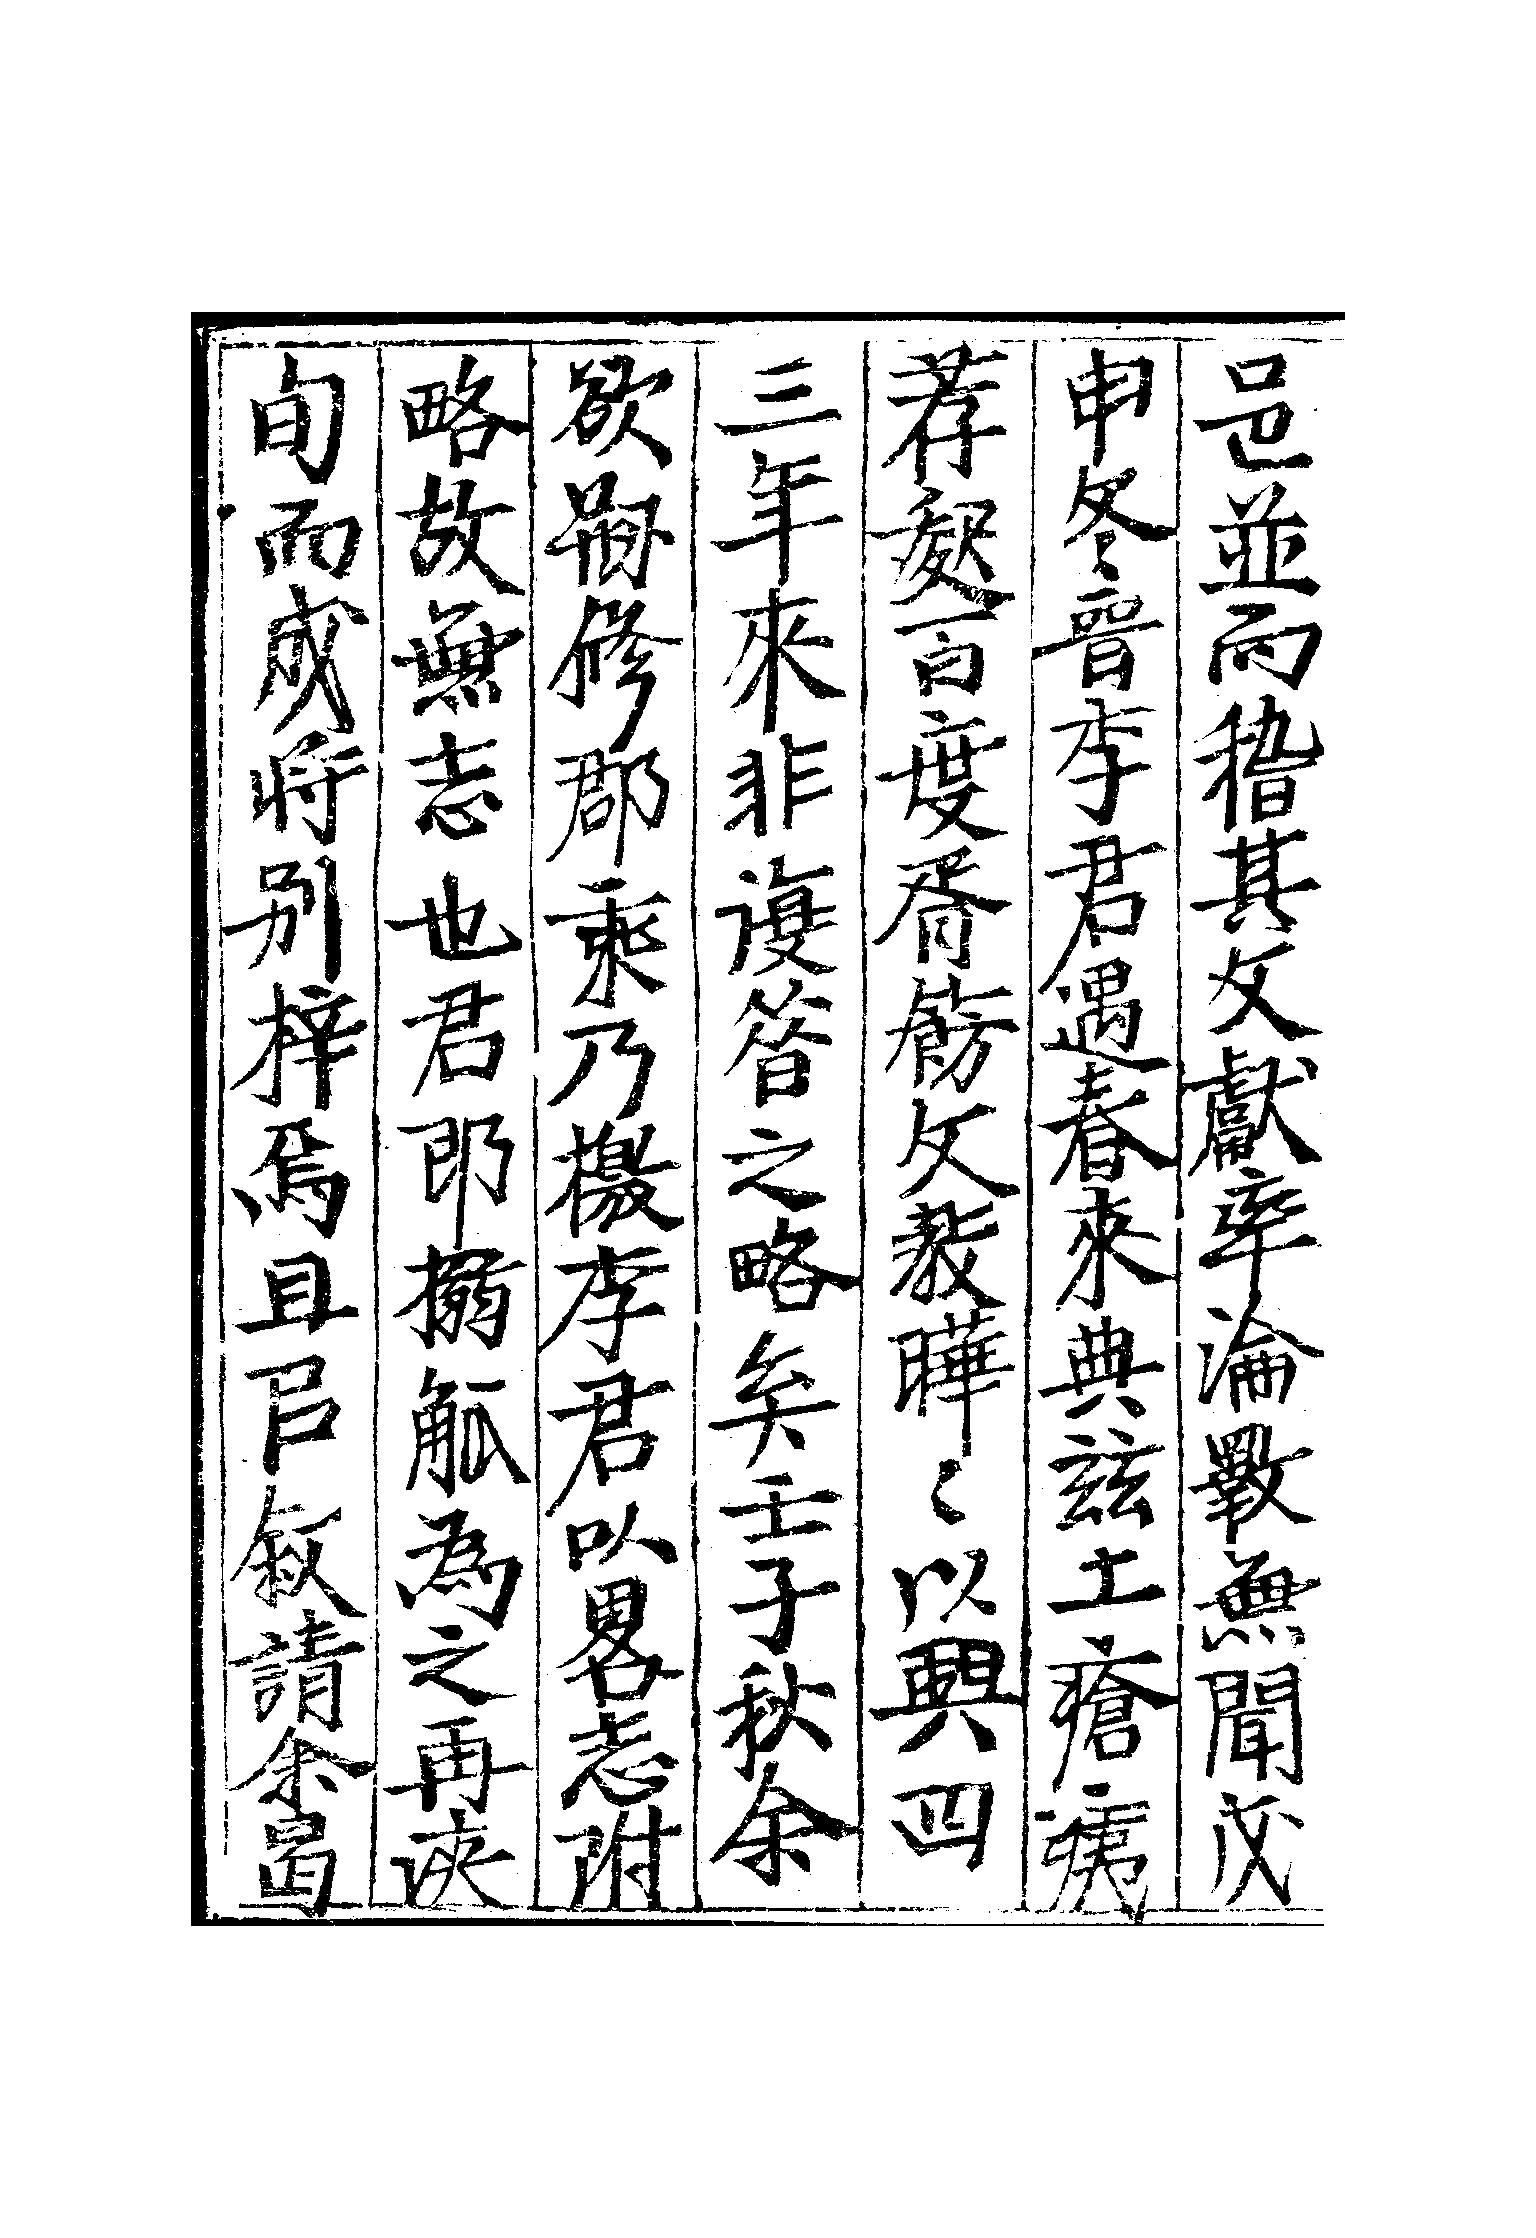 邑並而稽其文獻率淪斁無聞戊
申冬晉李君遇春來典兹土瘡痍
荐甦百度胥飭文教曄〻以興四
三年來非謾畣之略矣壬子秋余
欲嗣修郡乘乃檄李君以畧志附
略故無志也君即搦觚為之再浹
旬而成將别梓焉且㠯敘請余曷